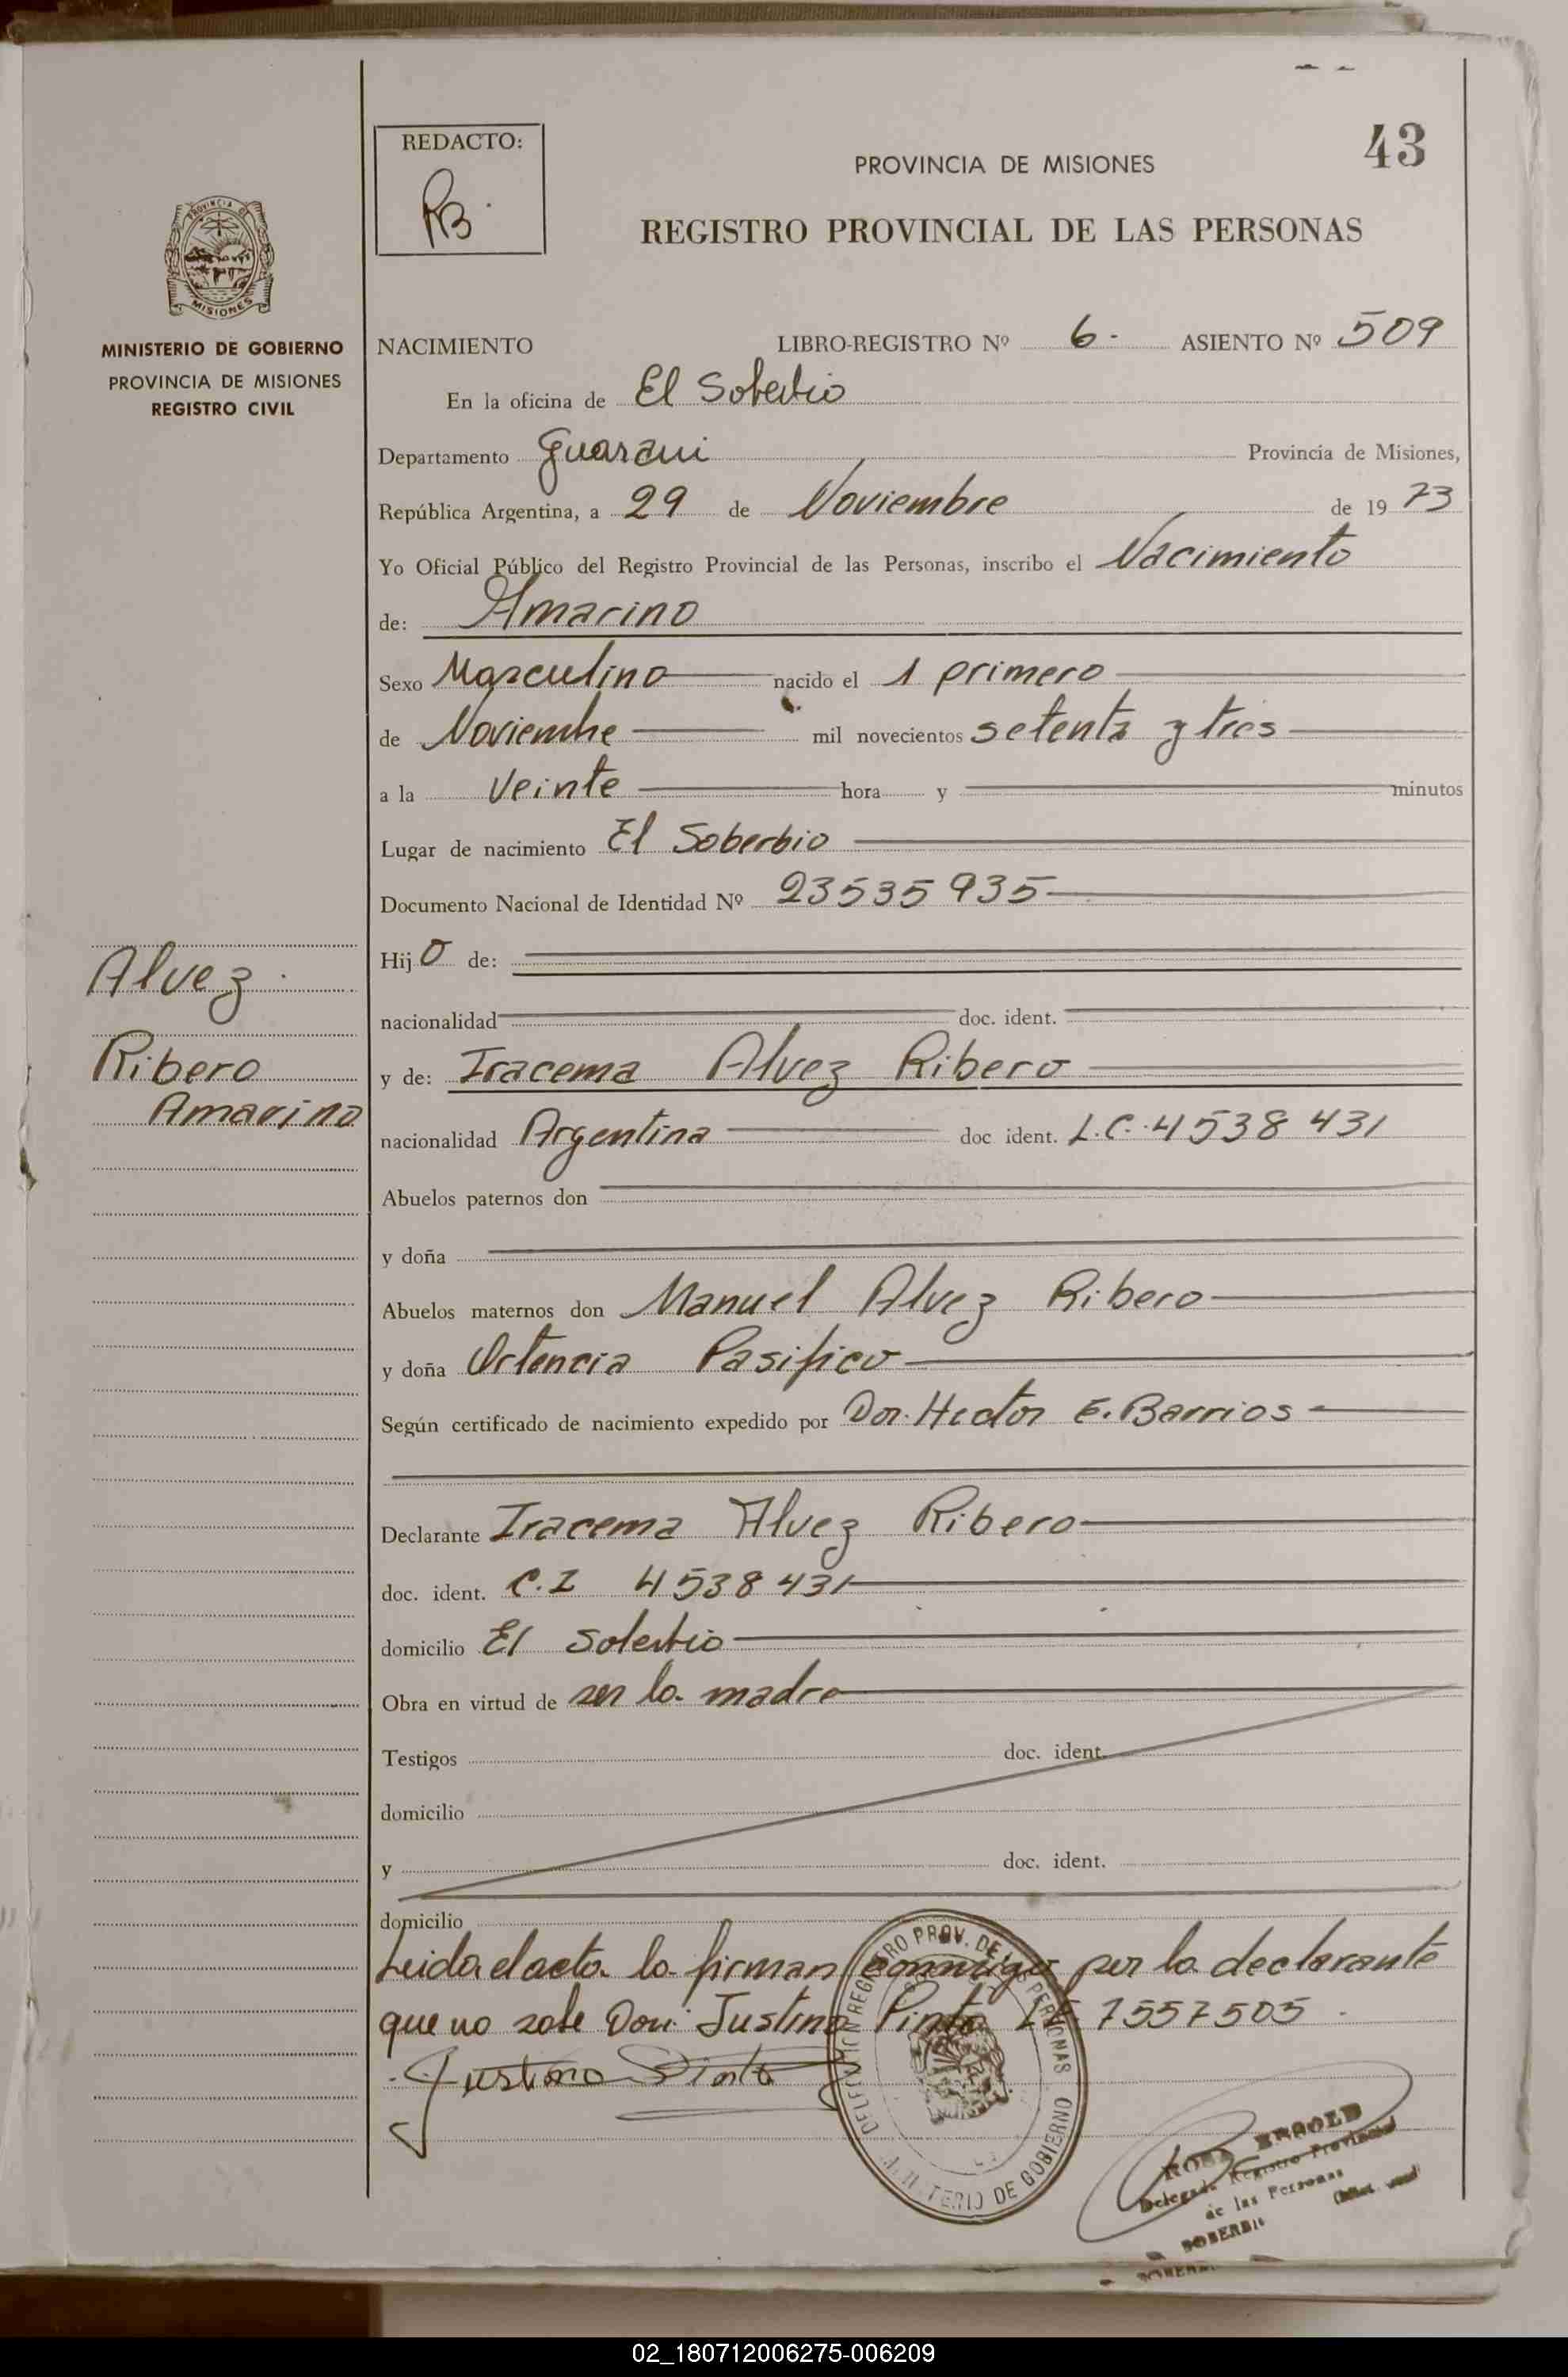 43
REDACTO:
RB.
PROVINCIA DE MISIONES
REGISTRO PROVINCIAL DE LAS PERSONAS
PROVINCIA DE
MISIONES
MINISTERIO DE GOBIERNO
PROVINCIA DE MISIONES
REGISTRO CIVIL
NACIMIENTO LIBRO-REGISTRO Nº 6- ASIENTO Nº 509
En la oficina de El Soberbio
Departamento Guarani Provincia de Misiones,
República Argentina, a 29 de Noviembre de 1973
Yo Oficial Público del Registro Provincial de las Personas, inscribo el Nacimiento
de: Amarino
Sexo Masculino nacido el 1 primero
de Noviembre mil novecientos setenta y tres
a la Veinte hora y minutos
Lugar de nacimiento El Soberbio
Documento Nacional de Identidad Nº 23535935
Hijo de:
nacionalidad doc. ident.
y de: Iracema Alvez Ribero
nacionalidad Argentina doc ident. L.C. 4538431
Abuelos paternos don
y doña
Abuelos maternos don Manuel Alvez Ribero
y doña Ortencia Pasifico
Según certificado de nacimiento expedido por Dor. Hector E. Barrios
Declarante Iracema Alvez Ribero
doc. ident. C.I 4538431
domicilio El Soberbio
Obra en virtud de ser la madre
Testigos doc. ident.
domicilio
y doc. ident.
domicilio
Leida el acta la firman conmigo por la declarante
que no sabe Don: Justino Pinto LE 7557505.
Justino Pinto
Alvez
Ribero
Amarino
REGISTRO PROV. DE LAS PERSONAS
MINISTERIO DE GOBIERNO
Delegada Registro Provincial
de las Personas
SOBERBIO
02_180712006275-006209